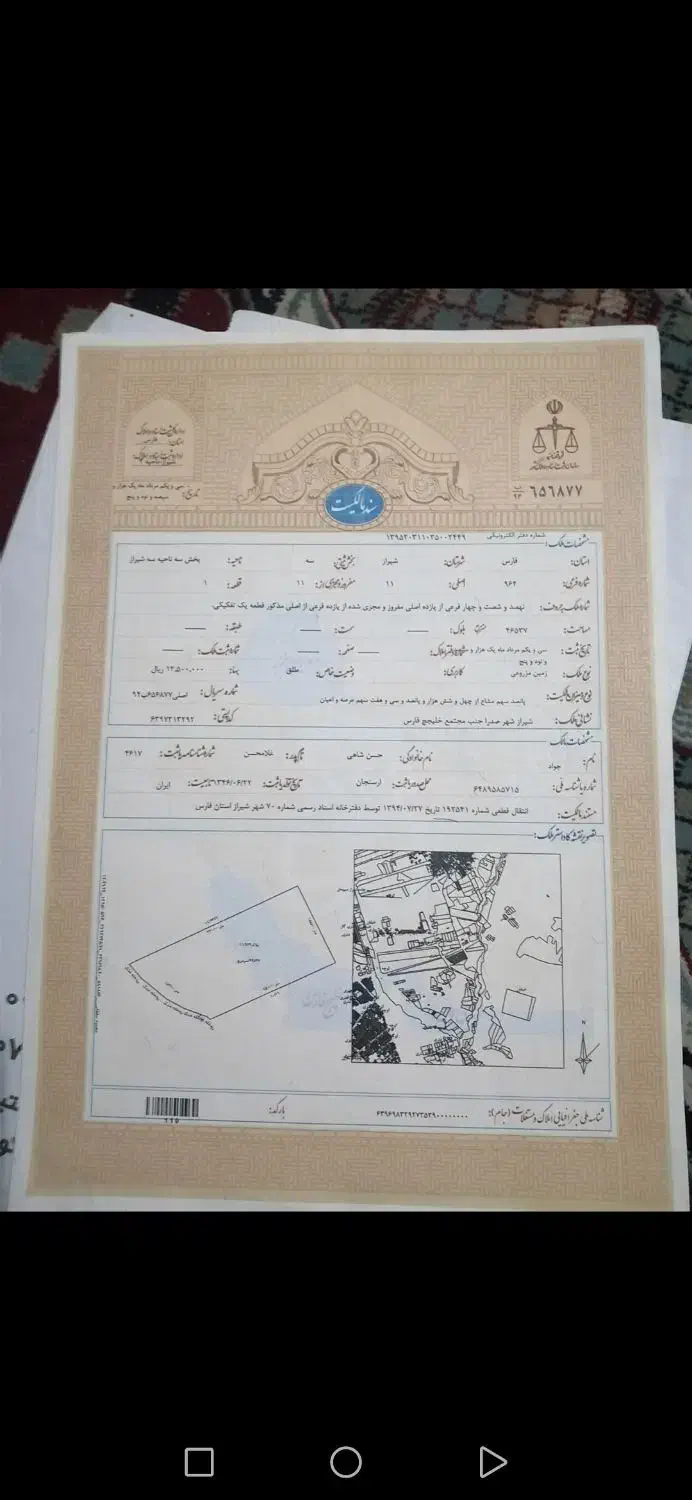 سند مالکیت
۶۵۶۸۷۷
تاریخ: سی و یکم مرداد ماه یک هزار و سیصد و نود و پنج
مشخصات ملک:
شماره دفتر الکترونیکی ۱۳۹۵۲۰۳۱۱۰۳۵۰۰۲۴۴۹
استان: فارس شهرستان: شیراز بخش ثبتی: سه ناحیه: بخش سه ناحیه سه شیراز
شماره فرعی: ۹۶۴ اصلی: ۱۱ مفروز و مجزی از: ۱۱ قطعه: ۱
شماره ملک به حروف: نهصد و شصت و چهار فرعی از یازده اصلی مفروز و مجزی شده از یازده فرعی از اصلی مذکور قطعه یک تفکیکی.
مساحت: ۴۶۵۳۷ بلوک: سمت: طبقه:
تاریخ ثبت: سی و یکم مرداد ماه یک هزار و و نود و پنج شماره دفتر املاک: صفحه: شماره ثبت ملک:
نوع ملک: زمین مزروعی کاربری: وضعیت خاص: مطلق بهاء: ۱۳,۵۰۰,۰۰۰ ریال
نوع و میزان مالکیت: پانصد سهم مشاع از چهل و شش هزار و پانصد و سی و هفت سهم عرصه و اعیان شماره سریال: اصلی ۶۵۶۸۷۷ب۹۴
نشانی ملک: شیراز شهر صدرا جنب مجتمع خلیج فارس کد پستی: ۶۳۹۷۳۱۳۲۹۲
مشخصات مالک:
نام: جواد نام خانوادگی: حسن شاهی نام پدر: غلامحسن شماره شناسنامه یا ثبت: ۴۶۱۷
شماره یا شناسه ملی: ۶۴۸۹۵۸۵۷۱۵ محل صدور یا ثبت: ارسنجان تاریخ تولد یا ثبت: ۱۳۴۶/۰۶/۲۲ تابعیت: ایران
مستند مالکیت: انتقال قطعی شماره ۱۹۲۵۴۱ تاریخ ۱۳۹۴/۰۷/۲۷ توسط دفترخانه اسناد رسمی شماره ۷۰ شهر شیراز استان فارس.
تصویر نقشه کاداستر ملک:
N
شناسه ملی جغرافیایی املاک و مستغلات (جام): ۶۳۹۶۹۸۳۲۹۲۷۳۵۲۹۰۰۰۰۰۰۰۰ بارکد:
115